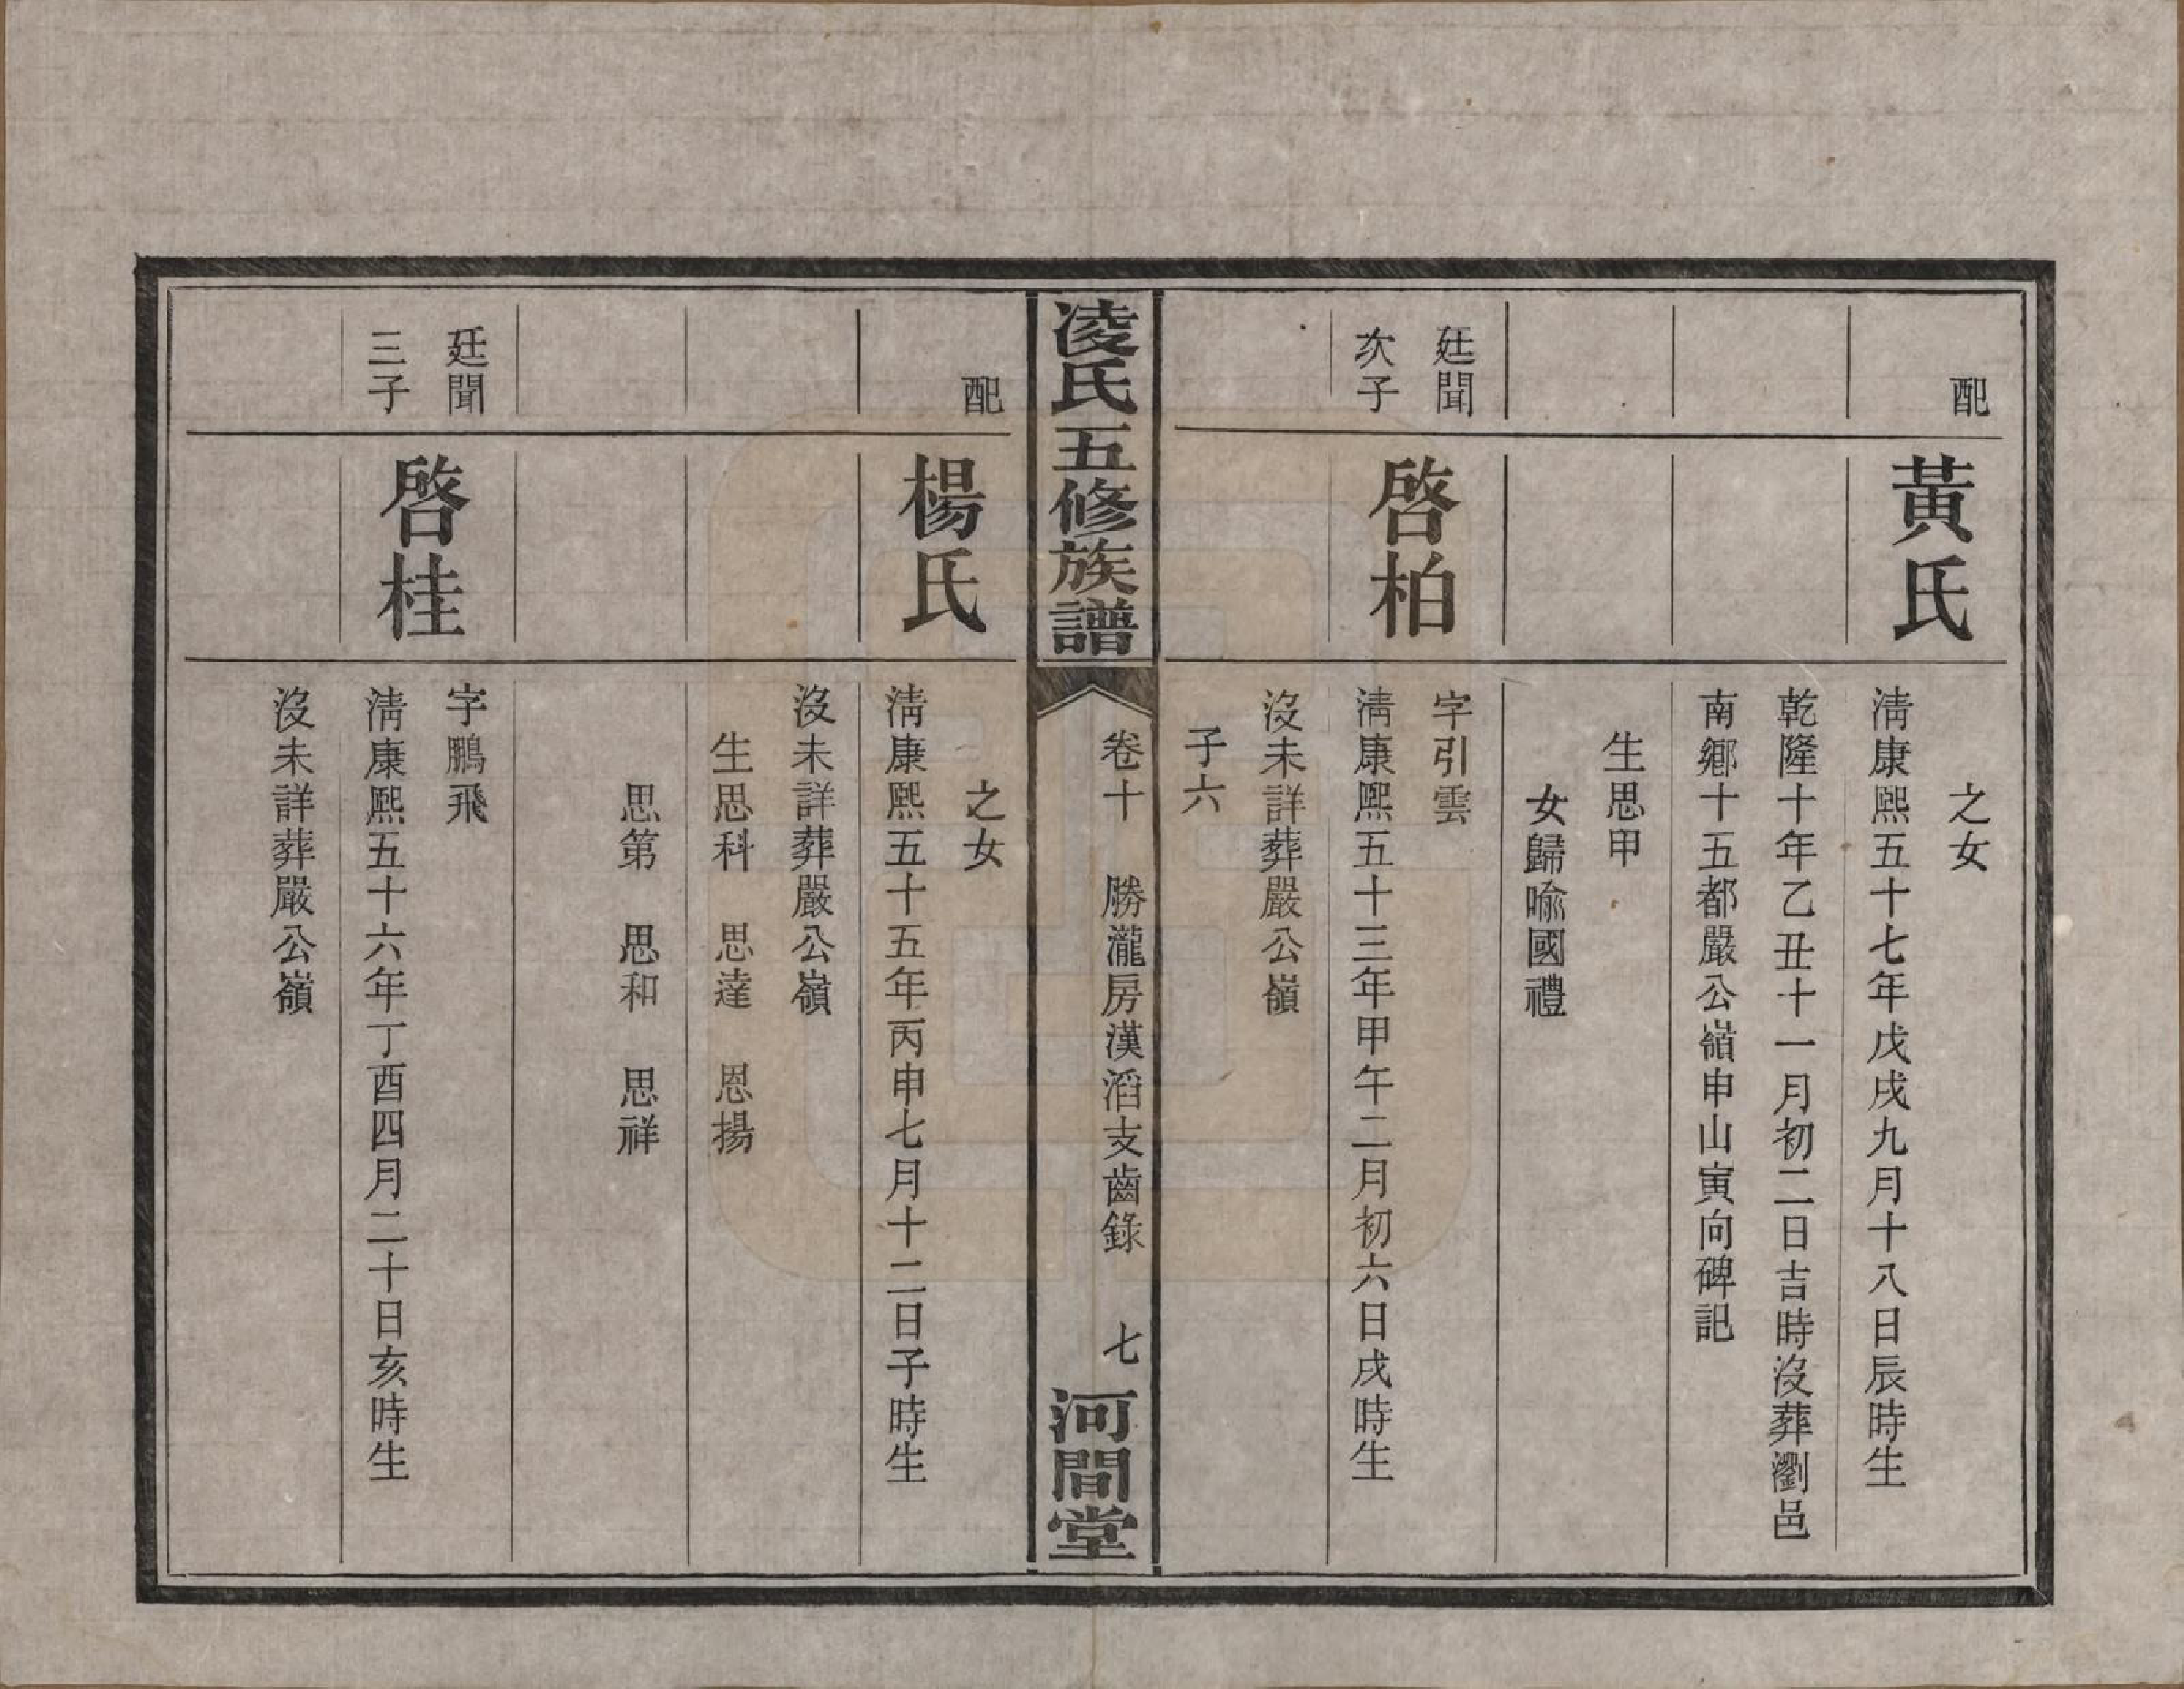 配
黃氏
之女
淸康熙五十七年戊戌九月十八日辰時生
乾隆十年乙丑十一月初二日吉時沒葬瀏邑
南鄉十五都嚴公嶺申山寅向碑記
生思甲
女歸喩國禮
廷聞
次子
啓柏
字引雲
淸康熙五十三年甲午二月初六日戌時生
沒未詳葬嚴公嶺
子六
凌氏五修族譜
卷十 勝瀧房漢滔支齒錄 七
河間堂
配
楊氏
之女
淸康熙五十五年丙申七月十二日子時生
沒未詳葬嚴公嶺
生思科 思達 思揚
思第 思和 思祥
廷聞
三子
啓桂
字鵬飛
淸康熙五十六年丁酉四月二十日亥時生
沒未詳葬嚴公嶺